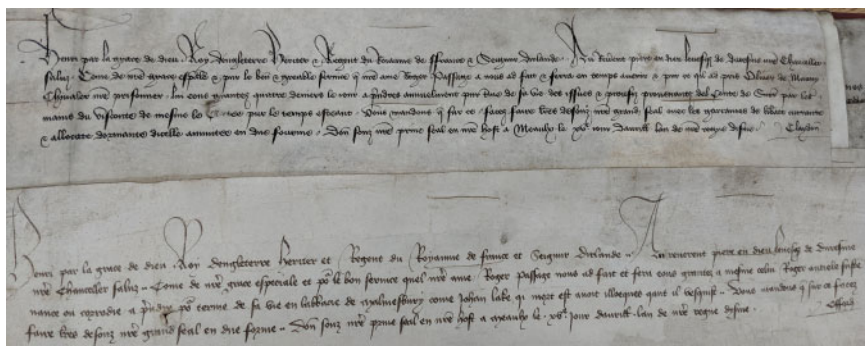 Henri par la grace de dieu Roy Dengleterre Heriter & Regent du Roiaume de ffrance & Seignur Dirlande. Au Reverent piere en dieu levesq de Duresme nre Chanceller
saluz. Come de nre grace especiale & pur le bon & greable service q nre ame Roger Passage a nous ad fait & ferra en temps avenir & pur ce qil ad pris Oliver de
Chivaler nre prisonner, lui eons grantez quatre deniers le iour a prendre annuelment pur terme de sa vie des issues & proufiz provenantz del Conte de par les
mains du visconte de mesme le Contee pur le temps esteant. Vous mandons q sur ce facez faire lres desouz nre grand seal avec les garrantes de
& allocate dormantz dicelle annuitee en due fourme. Don souz nre prive seal en nre host a Meaulx le iour Daverill lan de nre regne disme.
Henri par la grace de dieu Roy Dengleterre heriter et Regent du Royaume de france et Seignur Dirlande. Au reverent piere en dieu levesq de Duresme
nre Chanceller saluz. Come de nre grace especiale et por le bon service quel nre ame Roger Passage nous ad fait et fera eons grantez a mesme celui Roger
ou corrodie a prendre por terme de sa vie en labbacie de Malmesbury come Johan lake qi mort est avoit illoeques qant il vesquist. Vous mandons q sur ce facez
faire lres desouz nre grand seal en due forme. Don souz nre prive seal en nre host a Meaulx le jour daverill lan de nre regne disme.